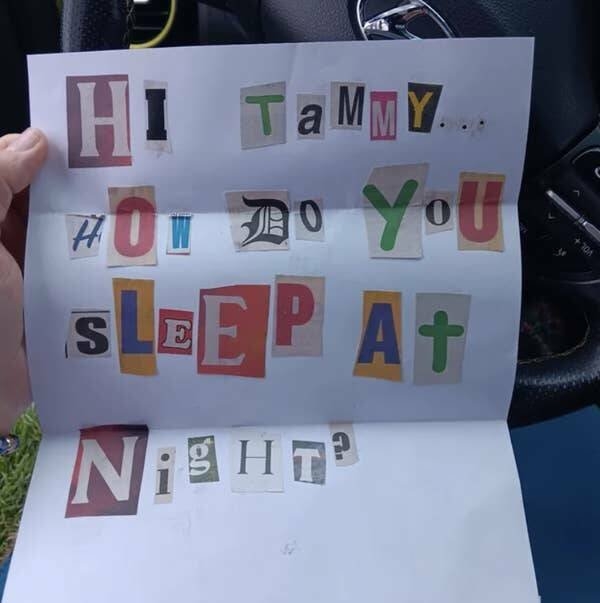 HI TaMMY...
HOW DO YOU
sLEEP At
NigHT?